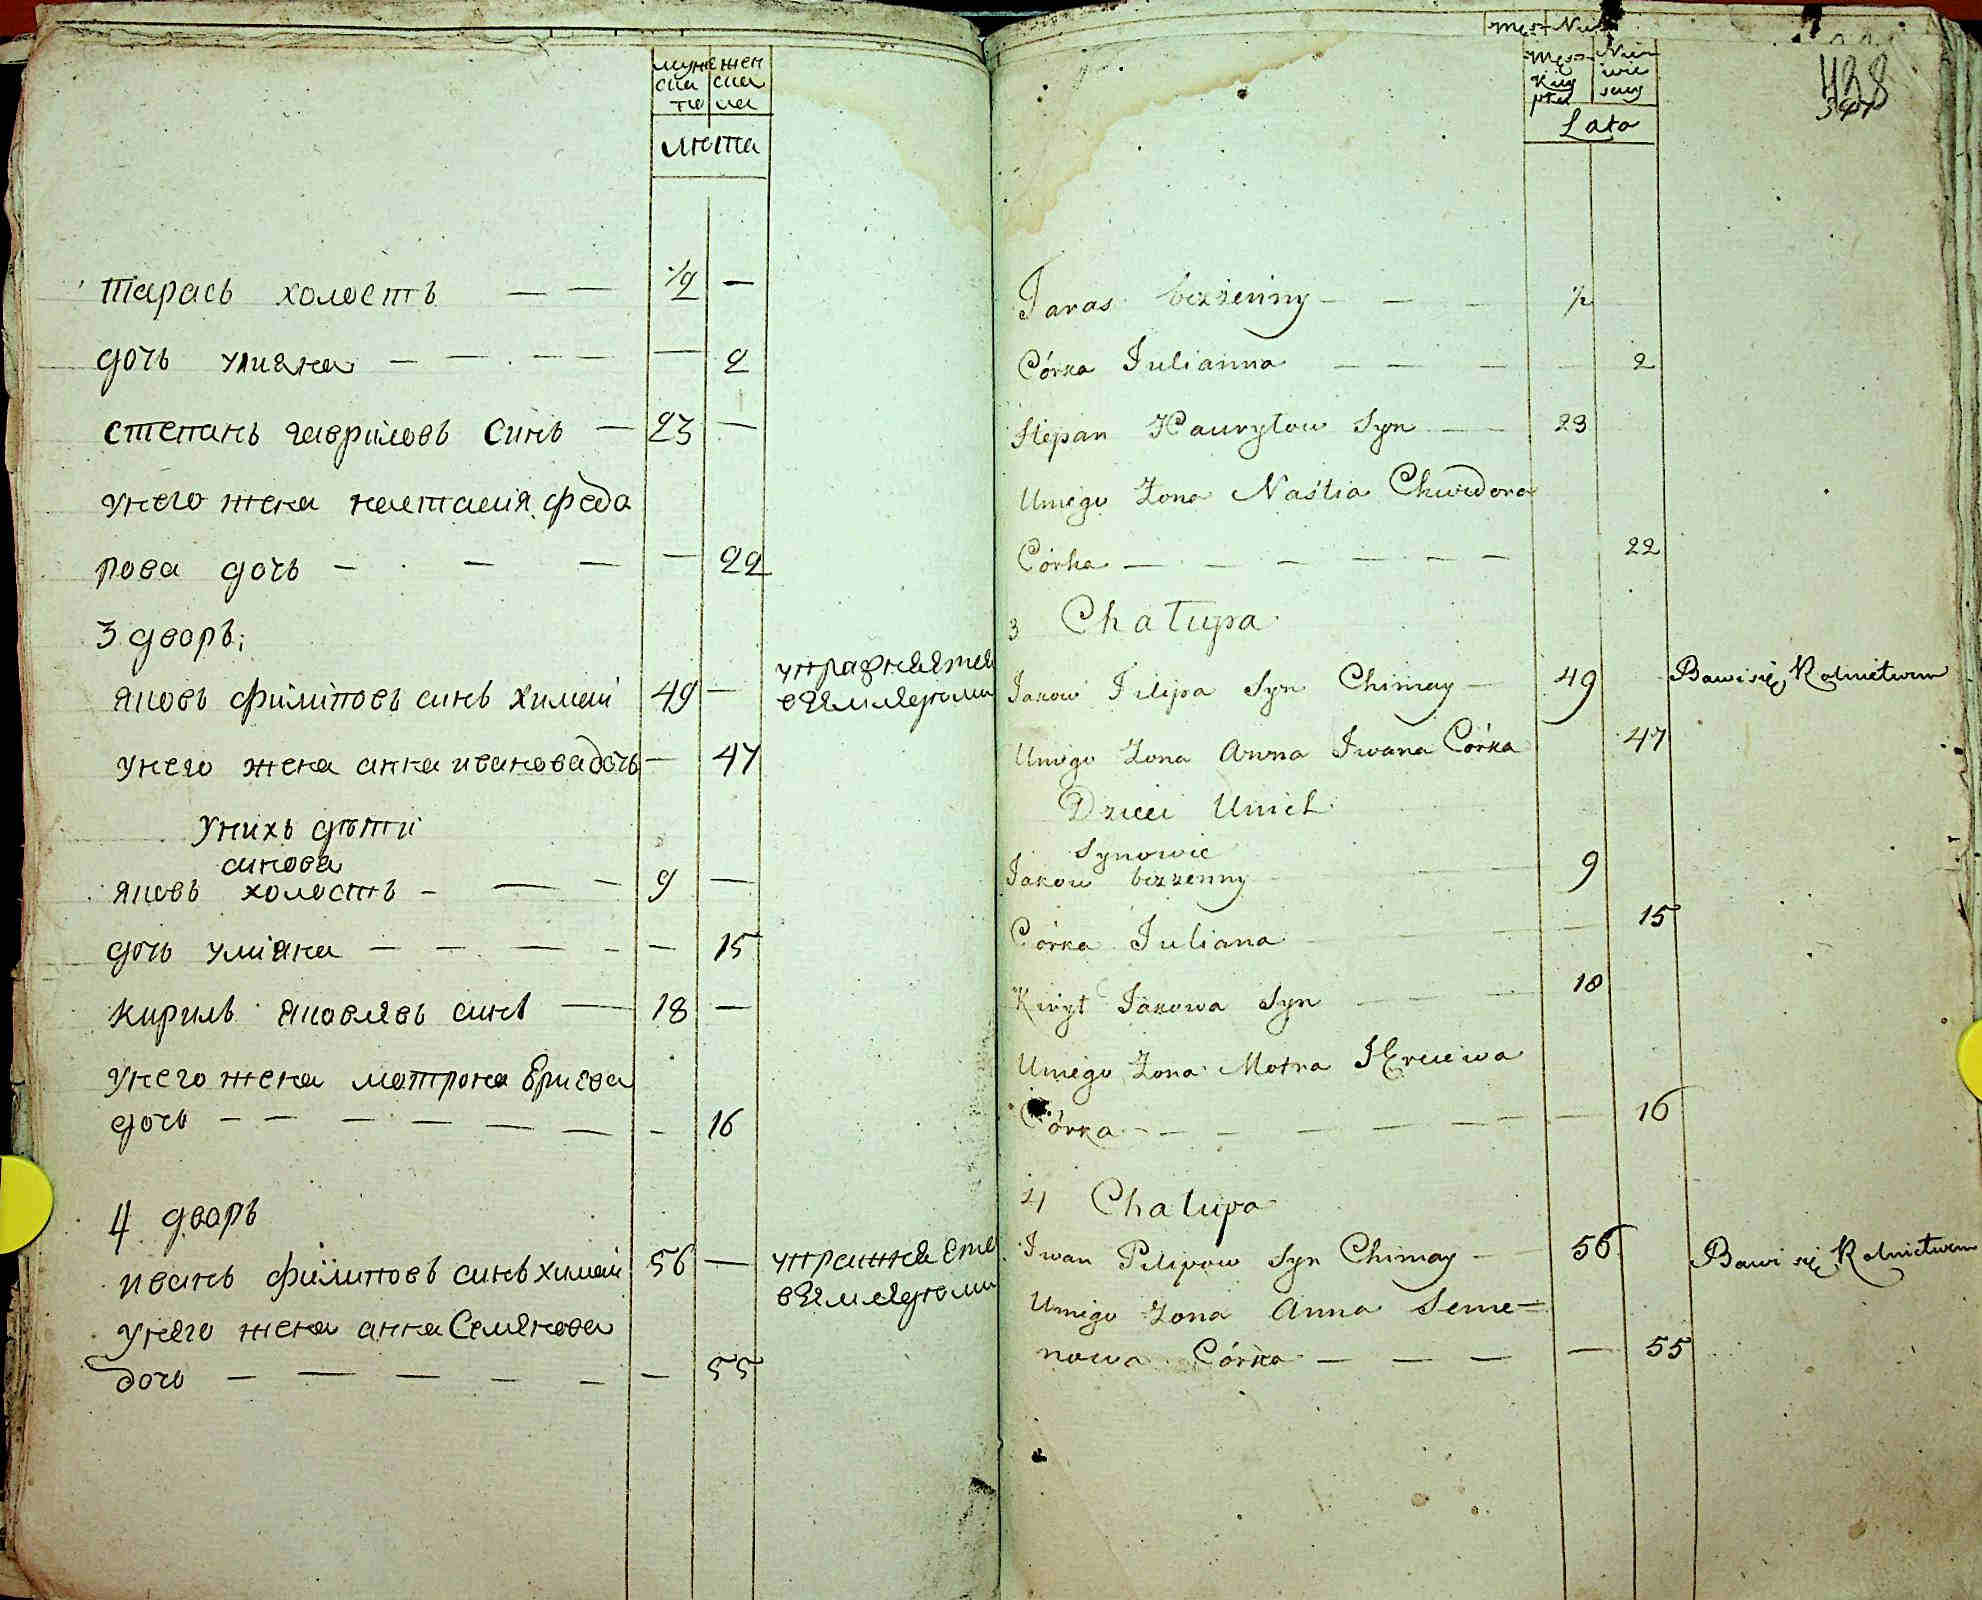 муже жен
ска ска
го ля
лѣта
тарасъ холостъ — — 1/2 —
дочь улияна — — — — — 2
степанъ гавриловъ синъ — 23 —
унего жена наеталия федо
рова дочь — — — — 22
3 дворъ;
яковъ филиповъ синъ химаи 49 — упражняется
вземледелии
унего жена анна иванова дочь — 47
унихъ дѣти
синова
яковъ холостъ — — — 9 —
дочь улияна — — — — — 15
кирилъ яковлевъ синъ — 18 —
унего жена матрона Ериева
дочь — — — — — — — 16
4 дворъ
иванъ филиповъ синъ химаи 56 — упражняется
вземледелии
унего жена анна Семенова
дочь — — — — — — 55
Męz Nie
Męz Nie
kig wie
pta sciey
Lata
438
Taras bezżenny — — — 1/2
Córka Julianna — — — — 2
Stepan Hauryłow Syn — — 23
Uniego Żona Nastia Chwedora
Córka — — — — — — 22
3 Chałupa
Jakow Filipa Syn Chimay — 49 Bawi się Rolnictwem
Uniego Żona Anna Iwana Córka 47
Dzieci Unich
Synowie
Jakow bezżenny 9
Córka Juliana — 15
Kirył Jakowa Syn — — — 18
Uniego Żona Motra JEreiewa
Córka — — — — — — — 16
4 Chałupa
Iwan Pilipow Syn Chimay — 56 Bawi się Rolnictwem
Uniego Żona Anna Seme=
nowa Córka — — — — 55